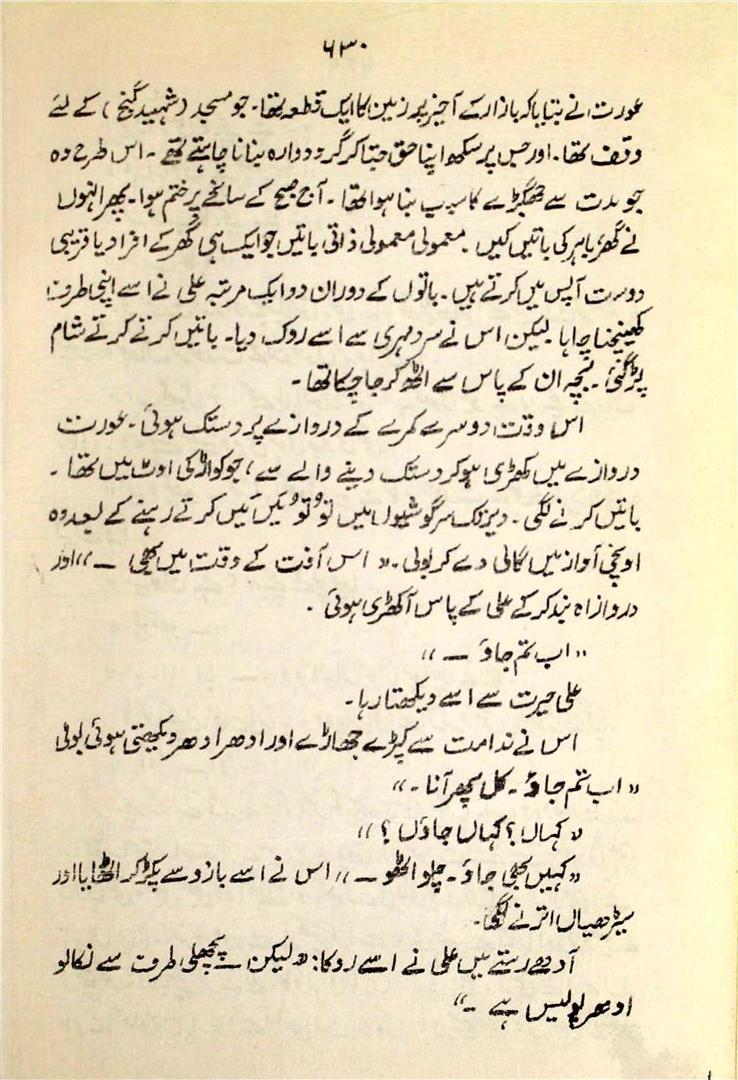 ۶۳۰
عورت نے بتایا کہ بازار کے آخیر پر زمین کا ایک قطعہ تھا۔ جو مسجد (شہید گنج) کے لئے
وقف تھا۔ اور جس پر سکھ اپنا حق جتا کر گردوارہ بنانا چاہتے تھے۔ اس طرح وہ
جو مدت سے جھگڑے کا سبب بنا ہوا تھا۔ آج صبح کے سانحے پر ختم ہوا۔ پھر انہوں
نے گھر باہر کی باتیں کیں۔ معمولی معمولی ذاتی باتیں جو ایک ہی گھر کے افراد یا قریبی
دوست آپس میں کرتے ہیں۔ باتوں کے دوران دو ایک مرتبہ علی نے اسے اپنی طرف
کھینچنا چاہا لیکن اس نے سرد مہری سے اسے روک دیا۔ باتیں کرتے کرتے شام
پڑ گئی۔ بچہ ان کے پاس سے اٹھ کر جا چکا تھا۔
اس وقت دوسرے کمرے کے دروازے پر دستک ہوئی۔ عورت
دروازے میں کھڑی ہو کر دستک دینے والے سے، جو کواڑ کی اوٹ میں تھا۔
باتیں کرنے لگی۔ دیر تک سرگوشیوں میں تُو تُو مَیں مَیں کرتے رہنے کے بعد وہ
اونچی آواز میں گالی دے کر بولی۔ ”اس آفت کے وقت میں بھی —“ اور
دروازاہ بند کر کے علی کے پاس آ کھڑی ہوئی۔
”اب تم جاؤ —“
علی حیرت سے اسے دیکھتا رہا۔
اس نے ندامت سے کپڑے جھاڑے اور ادھر ادھر دیکھتی ہوئی بولی
”اب تم جاؤ۔ کل پھر آنا۔“
”کہاں؟ کہاں جاؤں؟“
”کہیں بھی جاؤ۔ چلو اٹھو —“ اس نے اسے بازو سے پکڑ کر اٹھایا اور
سیڑھیاں اترنے لگی۔
آدھے رستے میں علی نے اسے روکا: ”لیکن — پچھلی طرف سے نکالو
ادھر پولیس ہے —“